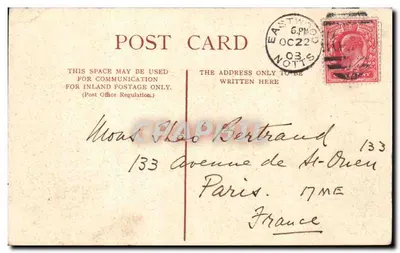 POST CARD
THIS SPACE MAY BE USED
FOR COMMUNICATION
FOR INLAND POSTAGE ONLY.
(Post Office Regulation.)
THE ADDRESS ONLY TO BE
WRITTEN HERE
EASTWOOD
6.PM
OC 22
03
NOTTS
Mons Theo Bertrand
133
133 avenue de St-Ouen
Paris. 17ME
France